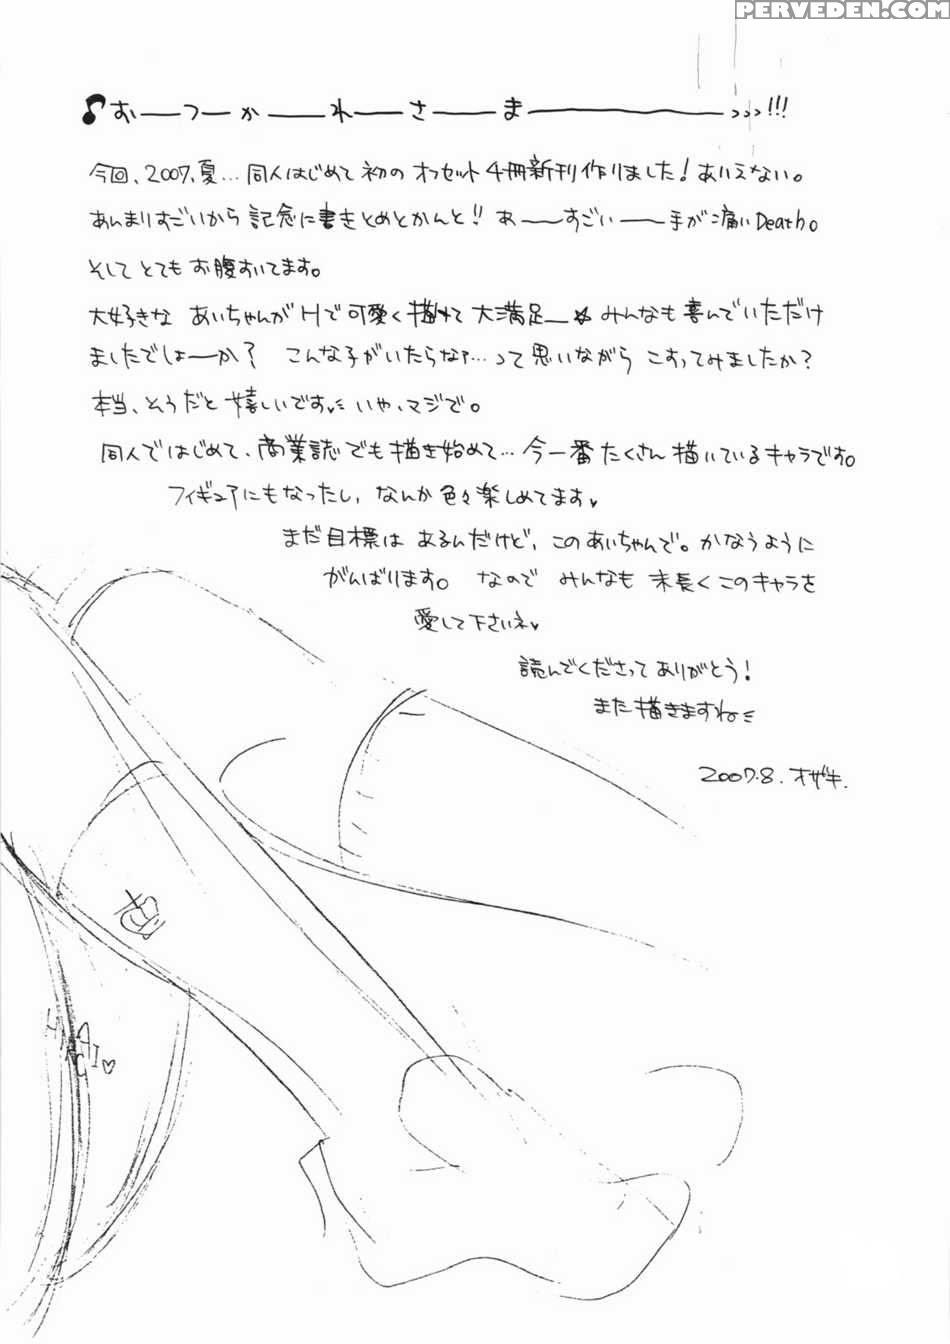 PERVEDEN.COM
♪おーつーかーれーさーまー〜〜〜!!!
今回、2007、夏…同人はじめて初のオフセット4冊新刊作りました!ありえない。
あんまりすごいから記念に書きとめとかんと!!あーーすごいーー手が痛いDeath。
そしてとてもお腹すいてます。
大好きなあいちゃんがHで可愛く描けて大満足ー☆みんなも喜んでいただけ
ましたでしょーか?こんな子がいたらなァ…って思いながらこすってみましたか?
本当、そうだと嬉しいです いや、マジで。
同人ではじめて、商業誌でも描き始めて…今一番たくさん描いているキャラです。
フィギュアにもなったし、なんか色々楽しめてます♥
まだ目標はあるんだけど、このあいちゃんで。かなうように
がんばります。なのでみんなも末長くこのキャラを
愛して下さいネ♥
読んでくださってありがとう!
また描きますね
2007.8.オザキ.
AI♡